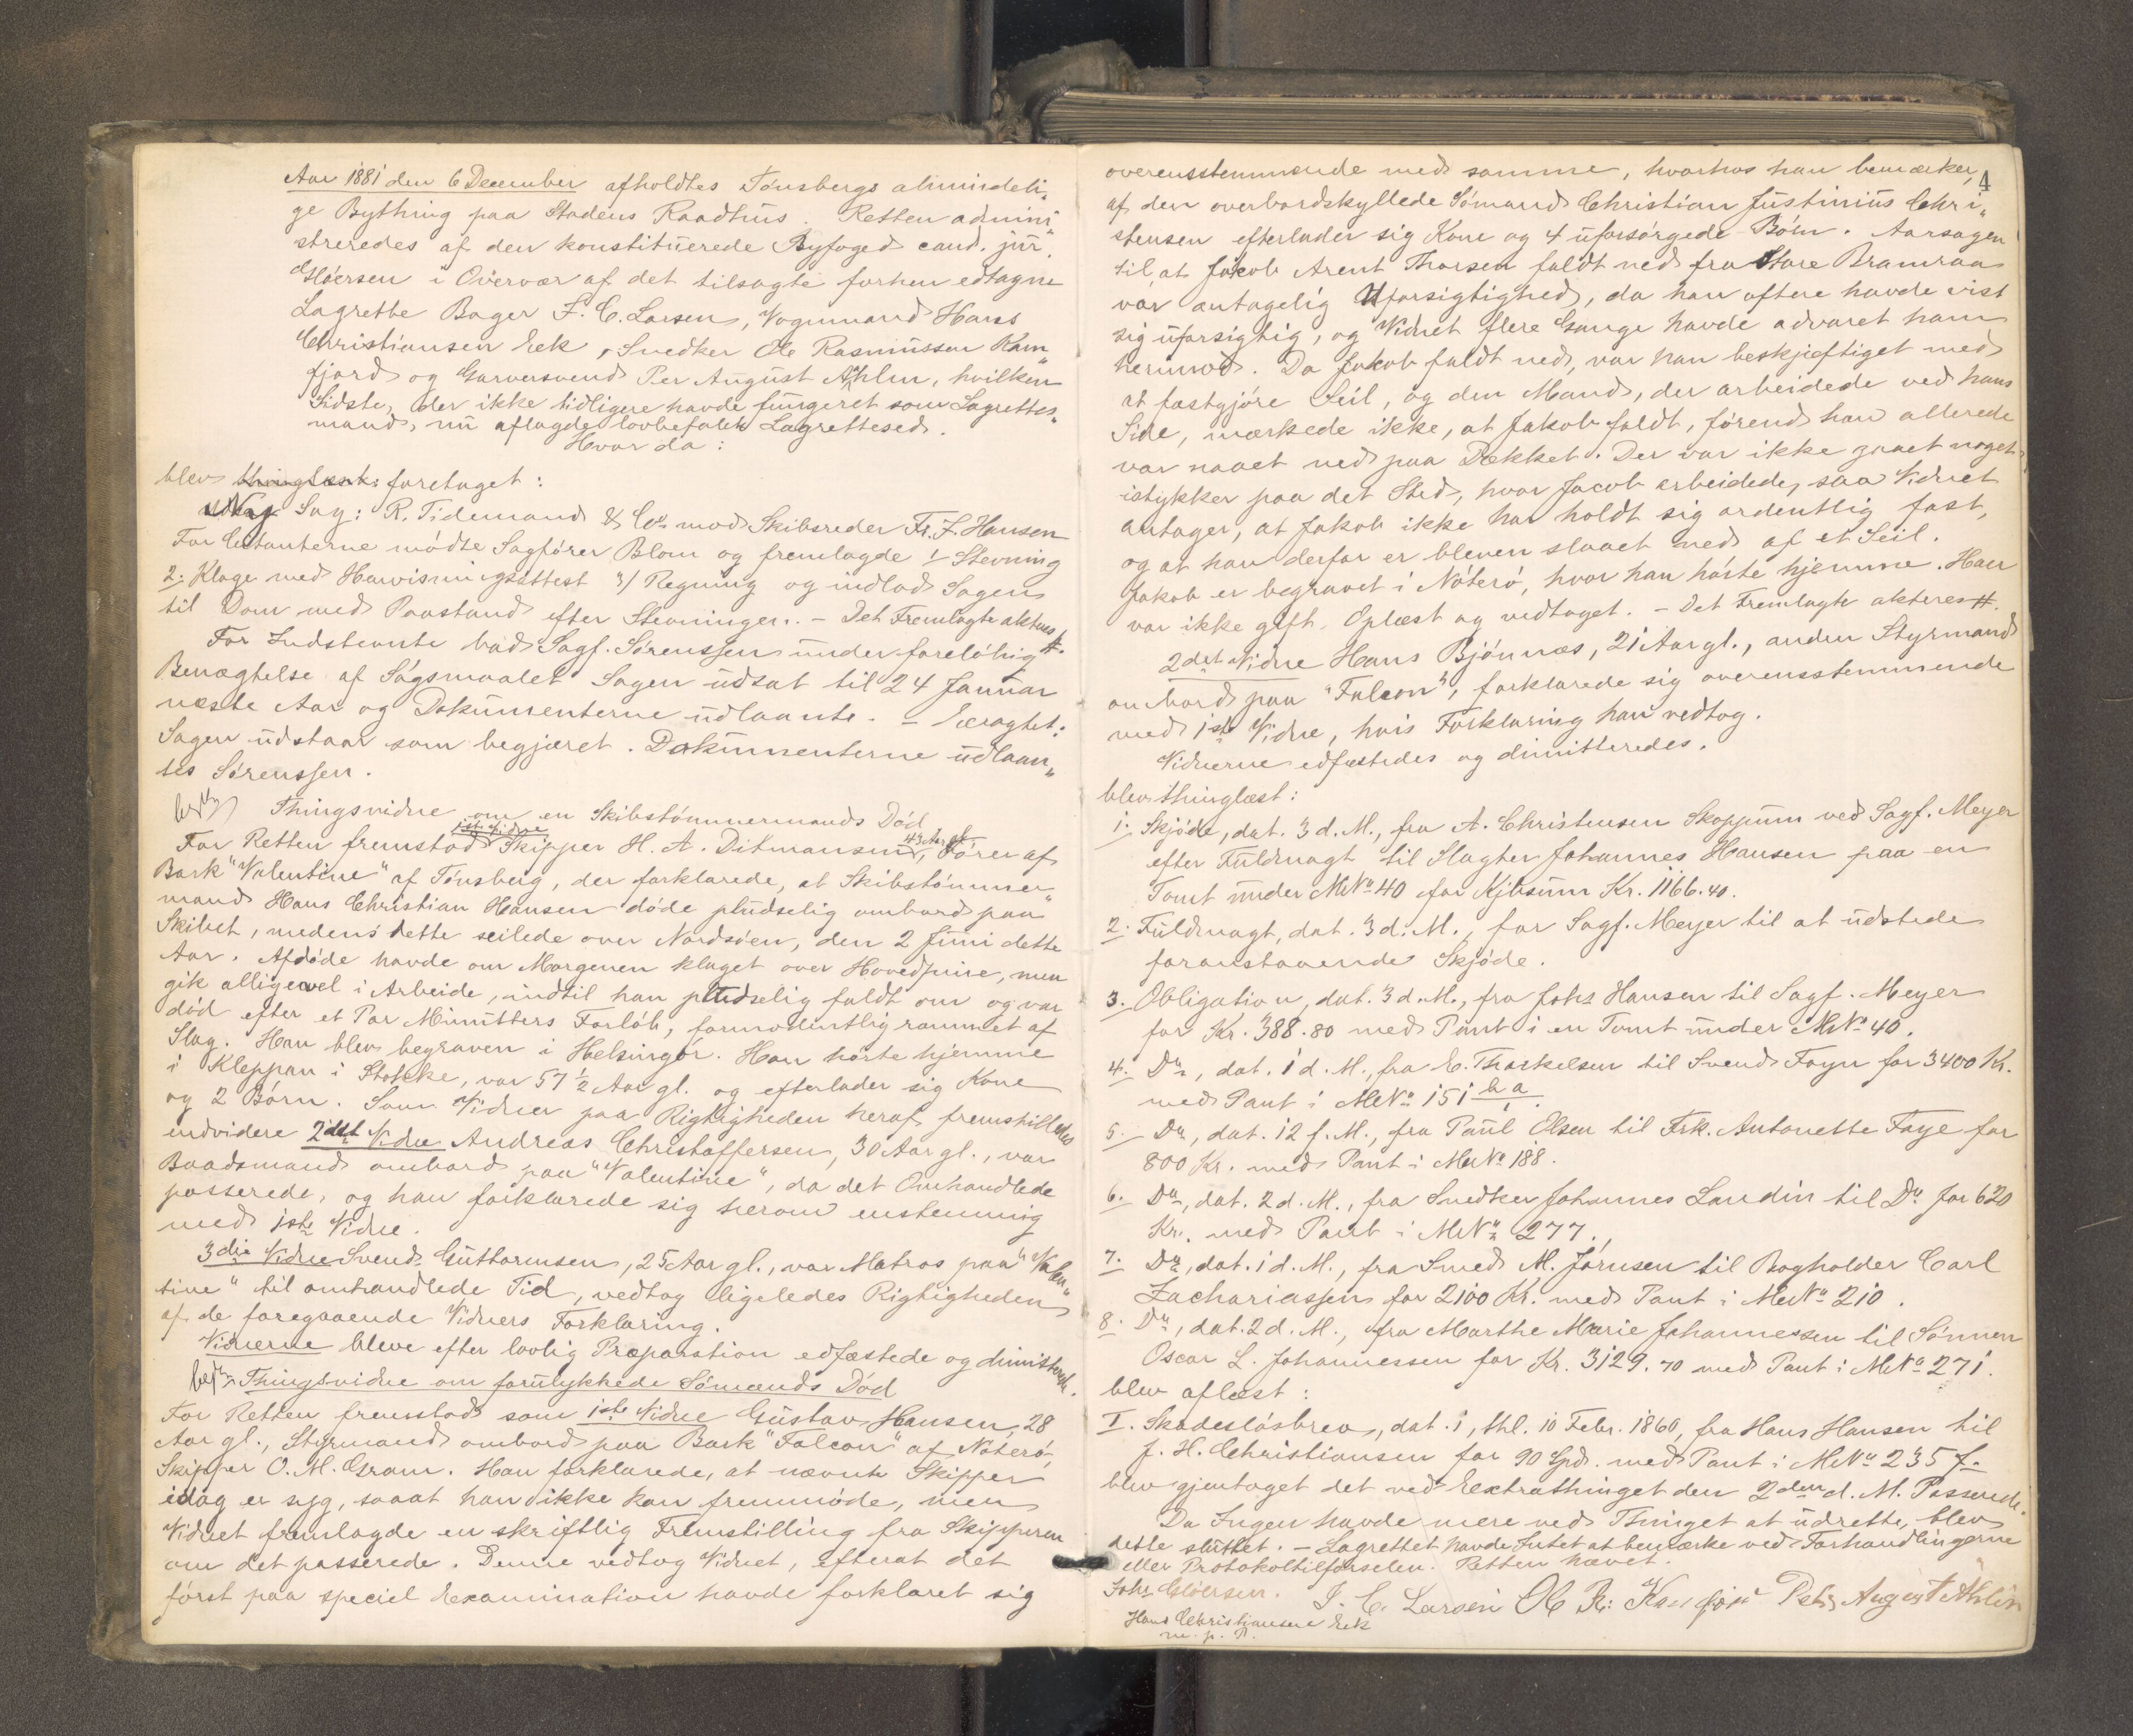 Aar 1881 den 6 December afholdtes Tönsbergs almindeli„
ge Bything paa Stadens Raadhus. Retten admini„
streredes af den konstituerede Byfoged cand. jur.
Gløersen i Overvær af det tilsagte forhen edtagne
Lagrette Bager F. C. Larsen, Vognmand Hans
Christiansen Eek, Snedker Ole Rasmussen Ram„
fjord og Garversvend Per August Ahlin, hvilken
Sidste, der ikke tidligere havde fungeret som Lagrettes„
mand, nu aflagde lovbefalet Lagrettesed.
Hvor da:
blev foretaget:
Ny Sag: R. Tidemand & Co. mod Skibsreder Fr. F. Hansen
For Citanterne mödte Sagförer Blom og fremlagde 1/ Stevning
2. Klage med Henvisningsattest 3/ Regning og indlod Sagen
til Dom med Paastand efter Stevningen. – Det Fremlagte akteres #.
For Indstevnte bad Sagf. Sörenssen under forelöbig
Benægtelse af Sögsmaalet Sagen udsat til 24 Januar
næste Aar og Dokumenterne udlaante. – Eragtet:
Sagen udstaar som begjæret. Dokumenterne udlaan„
tes Sörenssen.
Thingsvidne om en Skibstömmermands Död
For Retten fremstod 1ste Vidne Skipper H. A. Ditmansen, 43 Aar gl. Förer af
Bark "Valentine" af Tönsberg, der forklarede, at Skibstömmer„
mand Hans Christian Hansen döde pludselig ombord paa
Skibet, medens dette seilede over Nordsöen, den 2 Juni dette
Aar. Afdöde havde om Morgenen klaget over Hovedpine, men
gik alligevel i Arbeide, indtil han pludselig faldt om og var
död efter et Par Minutters Forlöb, formodentlig rammet af
Slag. Han blev begraven i Helsingör. Han hörte hjemme
i Kleppan i Stokke, var 57 ½ Aar gl. og efterlader sig Kone
og 2 Börn. Som Vidner paa Rigtigheden heraf fremstilledes
endvidere 2det Vidne Andreas Christoffersen, 30 Aar gl., var
Baadsmand ombord paa "Valentine", da det Omhandlede
passerede, og han forklarede sig herom enstemmig
med 1ste Vidne.
3die Vidne Svend Guttormsen, 25 Aar gl., var Matros paa "Valen„
tine" til omhandlede Tid, vedtog ligeledes Rigtigheden
af de foregaaende Vidners Forklaring.
Vidnerne bleve efter lovlig Præparation edfæstede og dimitterede.
Thingsvidne om forulykkede Sömænds Död
For Retten fremstod som 1ste Vidne Gustav Hansen, 28
Aar gl., Styrmand ombord paa Bark "Falcon" af Nöterö,
Skipper O. M. Gram. Han forklarede, at nævnte Skipper
idag er syg, saaat han ikke kan fremmöde, men
Vidnet fremlagde en skriftlig Fremstilling fra Skipperen
om det passerede. Denne vedtog Vidnet, efterat det
först paa speciel Examination havde forklaret sig
4
overensstemmende med samme, hvorhos han bemærker,
af den overbordskyllede Sömand Christian Justinius Chri„
stensen efterlader sig Kone og 4 uforsörgede Börn. Aarsagen
til, at Jakob Arent Thorsen faldt ned fra Store Bramraa
var antagelig Uforsigtighed, da han oftere havde vist
sig uforsigtig, og Vidnet flere Gange havde advaret ham
herimod. Da Jakob faldt ned, var han beskjæftiget med
at fastgjöre Seil, og den Mand, der arbeidede ved hans
Side, mærkede ikke, at Jakob faldt, förend han allerede
var naaet ned paa Dækket. Der var ikke gaaet noget
istykker paa det Sted, hvor Jacob arbeidede, saa Vidnet
antager, at Jakob ikke har holdt sig ordentlig fast,
og at han derfor er bleven slaaet ned af et Seil.
Jakob er begravet i Nöterö, hvor han hörte hjemme. Han
var ikke gift. Oplæst og vedtaget. – Det Fremlagte akteres #.
2det Vidne Hans Bjönnæs, 21 Aar gl., anden Styrmand
ombord paa "Falcon", forklarede sig overensstemmende
med 1ste Vidne, hvis Forklaring han vedtog.
Vidnerne edfæstedes og dimitteredes.
blev thinglæst:
1. Skjöde, dat. 3 d. M., fra A. Christensen Skoppum ved Sagf. Meyer
efter Fuldmagt til Slagter Johannes Hansen paa en
Tomt under MNo 40 for Kjöbsum Kr. 1166.40.
2. Fuldmagt, dat. 3 d. M., for Sagf. Meyer til at udstede
foranstaaende Skjöde.
3. Obligation, dat. 3 d. M., fra Johs Hansen til Sagf. Meyer
for Kr. 388.80 med Pant i en Tomt under MNo 40.
4. Do, dat. 1 d. M., fra E. Thorkelsen til Svend Foyn for 3400 Kr.
med Pant i MNo 151 b a/1.
5. Do, dat. 12 f. M., fra Paul Olsen til Frk. Antonette Faye for
800 Kr. med Pant i MNo 188.
6. Do, dat. 2 d. M., fra Snedker Johannes Lundin til Do for 620
Kr. med Pant i MNo 277.
7. Do, dat. 1 d. M., fra Smed M. Jörnsen til Bogholder Carl
Zachariassen for 2100 Kr. med Pant i MNo 210.
8. Do, dat. 2 d. M., fra Marthe Marie Johannessen til Sönnen
Oscar L. Johannessen for Kr. 3129.70 med Pant i MNo 271.
blev aflæst:
I. Skadeslösbrev, dat. 1, thl. 10 Febr. 1860, fra Hans Hansen til
J. H. Christiansen for 90 Spd. med Pant i MNo 235 f.
blev gjentaget det ved Extrathinget den 2den d. M. Passerede.
Da Ingen havde mere ved Thinget at udrette, blev
dette sluttet. – Lagrettet havde Intet at bemærke ved Forhandlingerne
eller Protokoltilförselen. Retten hævet.
Johs Gløersen. F. C. Larsen Ole R. Ramfjord Peter August Ahlin
Hans Christiansen Eek
m. p. P.